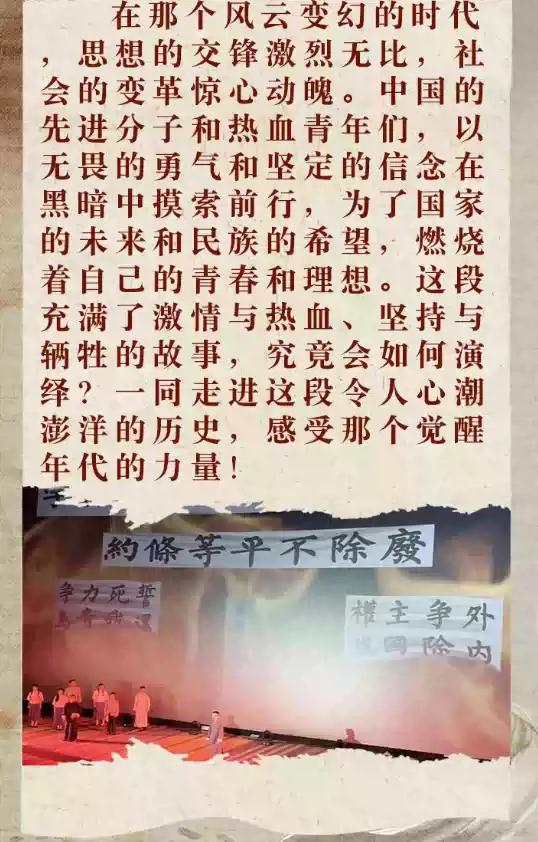 在那个风云变幻的时代
,思想的交锋激烈无比,社
会的变革惊心动魄。中国的
先进分子和热血青年们,以
无畏的勇气和坚定的信念在
黑暗中摸索前行,为了国家
的未来和民族的希望,燃烧
着自己的青春和理想。这段
充满了激情与热血、坚持与
辆牲的故事,究竟会如何演
绎?一同走进这段令人心潮
澎洋的历史,感受那个觉醒
年代的力量!
廢除不平等條約
外争主權
内除國
誓死力争
還我青島